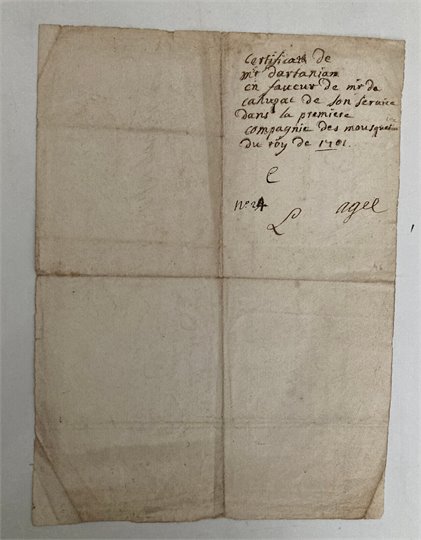 Certificat de
mr dartanian
en faueur de mr de
cahuzac de son seruice
dans la premiere
compagnie des mousquetaires
du roy de 1701.
C
No 24
L agel